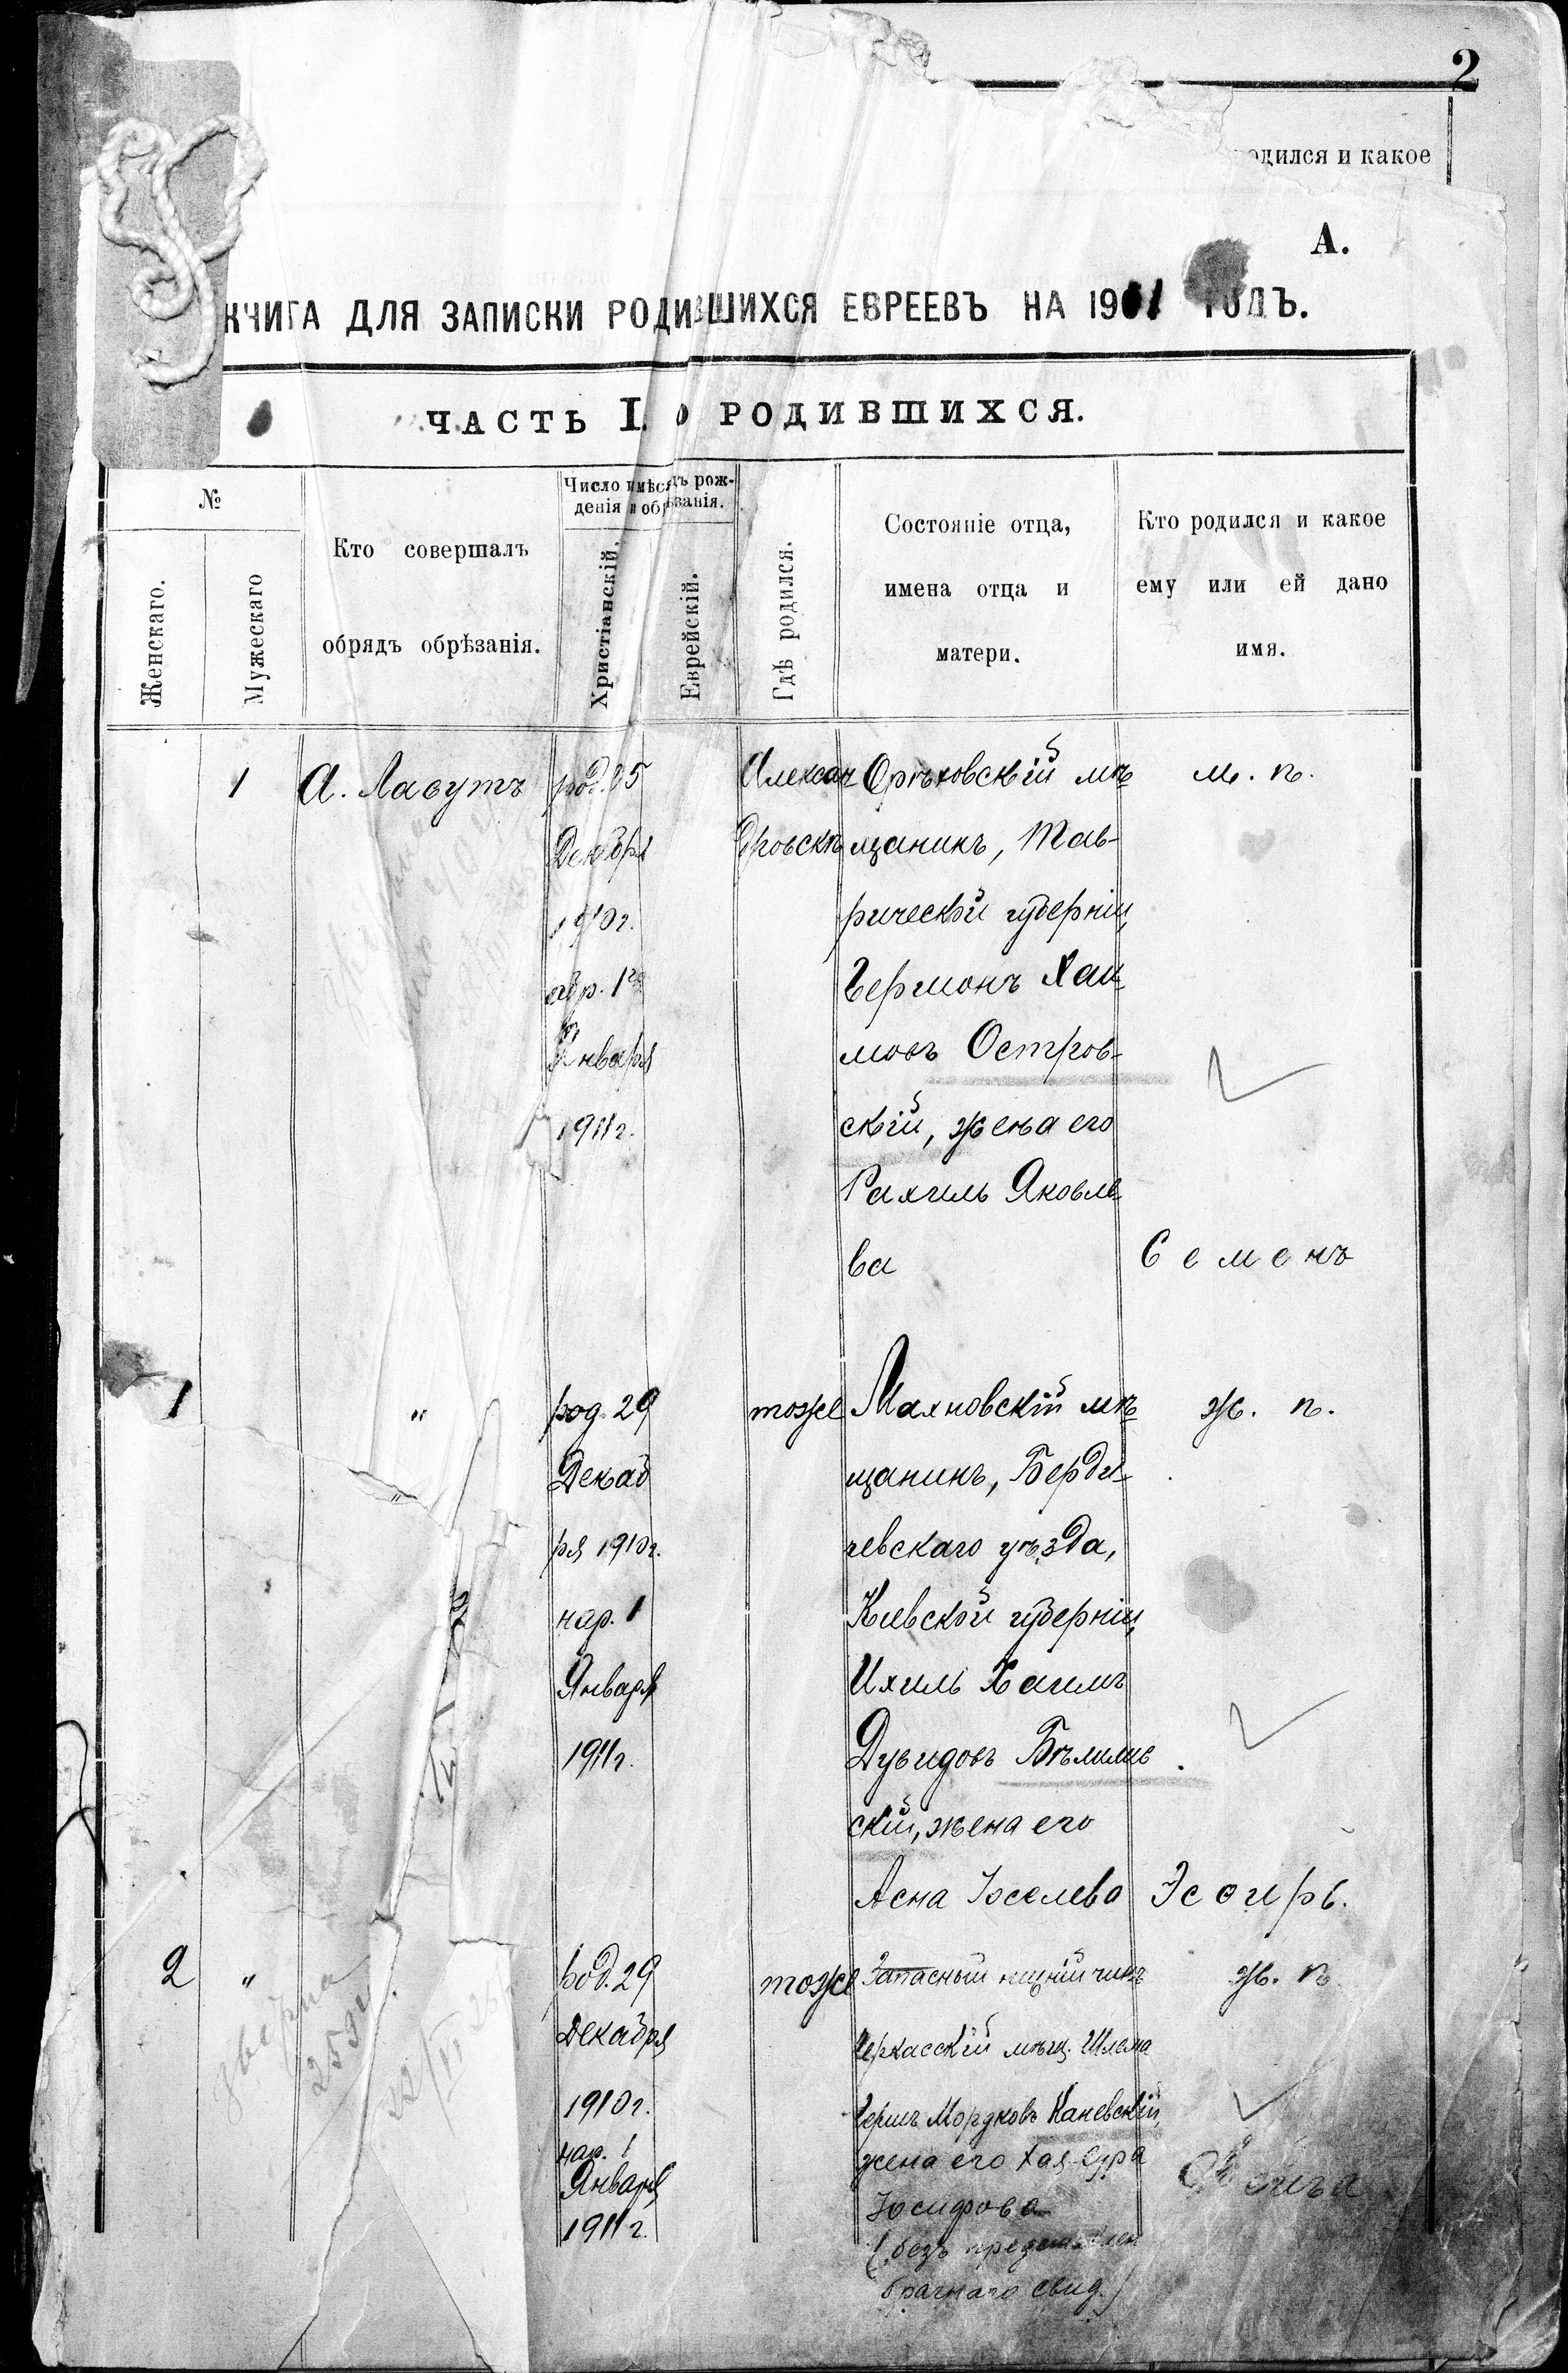 2
одился и какое
А.
КНИГА ДЛЯ ЗАПИСКИ РОДИВШИХСЯ ЕВРЕЕВЪ НА 1911 ГОДЪ.
ЧАСТЬ I. О РОДИВШИХСЯ.
№
Женскаго.
Мужескаго
Кто совершалъ
обрядъ обрѣзанія.
Число и мѣсяцъ рож-
денія и обрѣзанія.
Христіанскій.
Еврейскій.
Гдѣ родился.
Состояніе отца,
имена отца и
матери.
Кто родился и какое
ему или ей дано
имя.
1
А. Лавутъ
род. 25
Декабря
1910 г.
обр. 1го
Января
1911 г.
Алексан
дровскъ
Орѣховскій мѣ
щанинъ, Тав-
рической губерніи,
Германъ Хаи
мовъ Остров-
скій, жена его
Рахиль Яковле
ва
м. п.
Семенъ
1
"
род. 29
Декаб
ря 1910 г.
нар. 1
Января
1911 г.
тоже
Махновскій мѣ
щанинъ, Берди-
чевскаго уѣзда,
Кіевской губерніи,
Ихиль Хаимъ
Дувидовъ Бѣлилов
скій, жена его
Асна Іоселева
ж. п.
Эсѳирь.
2
"
род. 29
Декабря
1910 г.
нар. 1
Января
1911 г.
тоже
Запасный нижній чинъ
Черкасскій мѣщ. Шлема
Гершъ Мордковъ Каневскій,
жена его Хая-Сура
Іосифова
(безъ представлен
брачнаго свид.)
ж. п.